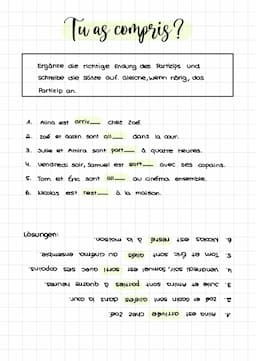 Tu as compris?
Ergänze die richtige Endung des Partizips und
schreibe die Sätze auf. Gleiche, wenn nötig, das
Partizip an.
1. Alina est arriv___ chez Zoé.
2. Zoé et sont all___ dans la cour.
3. Julie et Amira sont part___ à quatre heures.
4. Vendredi soir, Samuel est sort___ avec ses copains.
5. Tom et Éric sont all___ au cinéma ensemble.
6. Nicolas est rest___ à la maison.
Lösungen:
6. Nicolas est resté à la maison.
5. Tom et Éric sont allés au cinéma ensemble.
4. Vendredi soir, Samuel est sorti avec ses copains.
3. Julie et Amira sont parties à quatre heures.
2. Zoé et sont dans la cour.
1. Alina est arrivée chez Zoé.